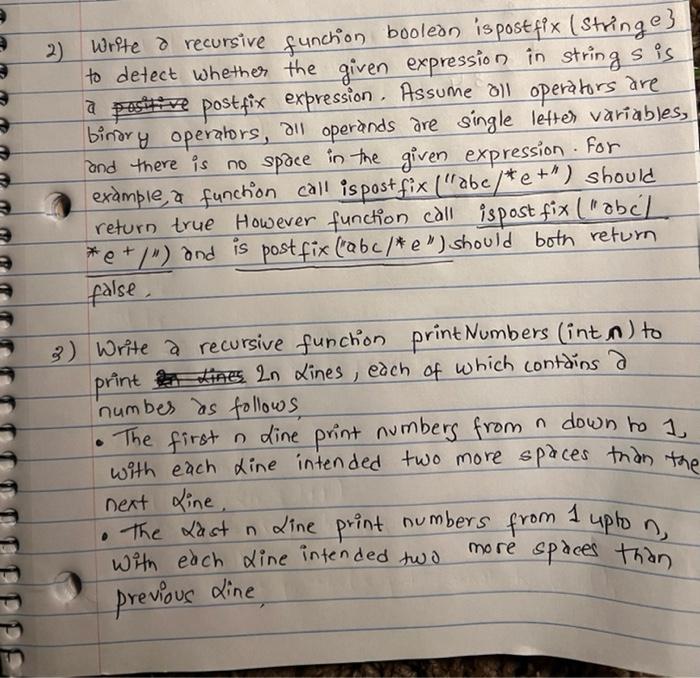 2) Write a recursive function boolean ispostfix (String e)
to detect whether the given expression in string s is
a positive postfix expression. Assume all operators are
binary operators, all operands are single letter variables,
and there is no space in the given expression. For
example, a function call ispostfix ("abc/*e+") should
return true However function call ispostfix ("abc/
*e+/") and is postfix ("abc/*e") should both return
false.
3) Write a recursive function printNumbers (int n) to
print 2n Lines 2n Lines, each of which contains a
number as follows
• The first n line print numbers from n down to 1,
with each line intended two more spaces than the
next line.
• The Last n line print numbers from 1 upto n,
with each line intended two more spaces than
previous line